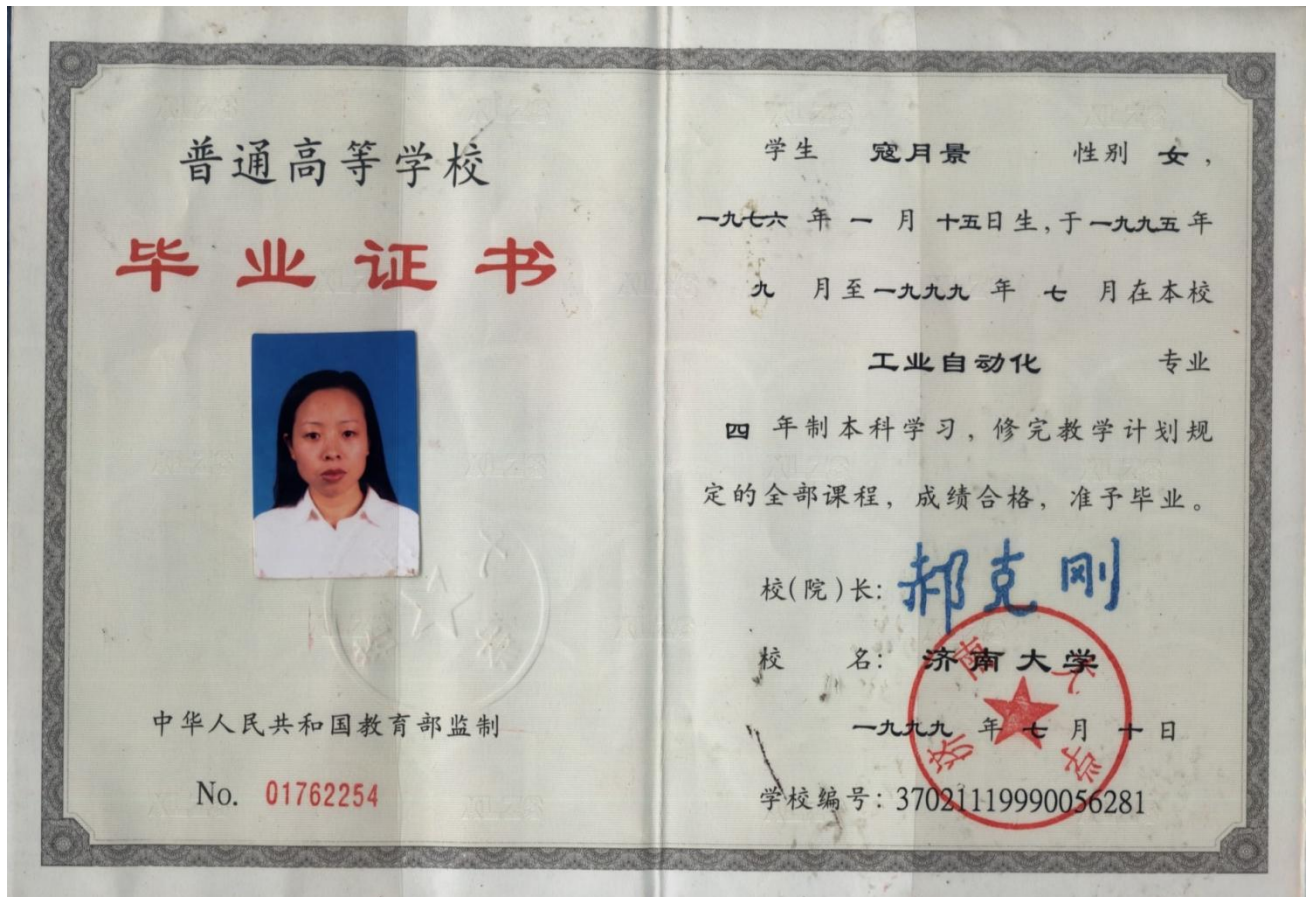 普通高等学校
毕业证书
中华人民共和国教育部监制
No. 01762254
学生 寇月景 性别 女，
一九七六 年 一 月 十五日生，于一九九五年
九 月至一九九九 年 七 月在本校
工业自动化 专业
四 年制本科学习，修完教学计划规
定的全部课程，成绩合格，准予毕业。
校(院)长：郝克刚
校 名：济南大学
一九九九 年 七 月 十 日
学校编号：37021119990056281
济南大学